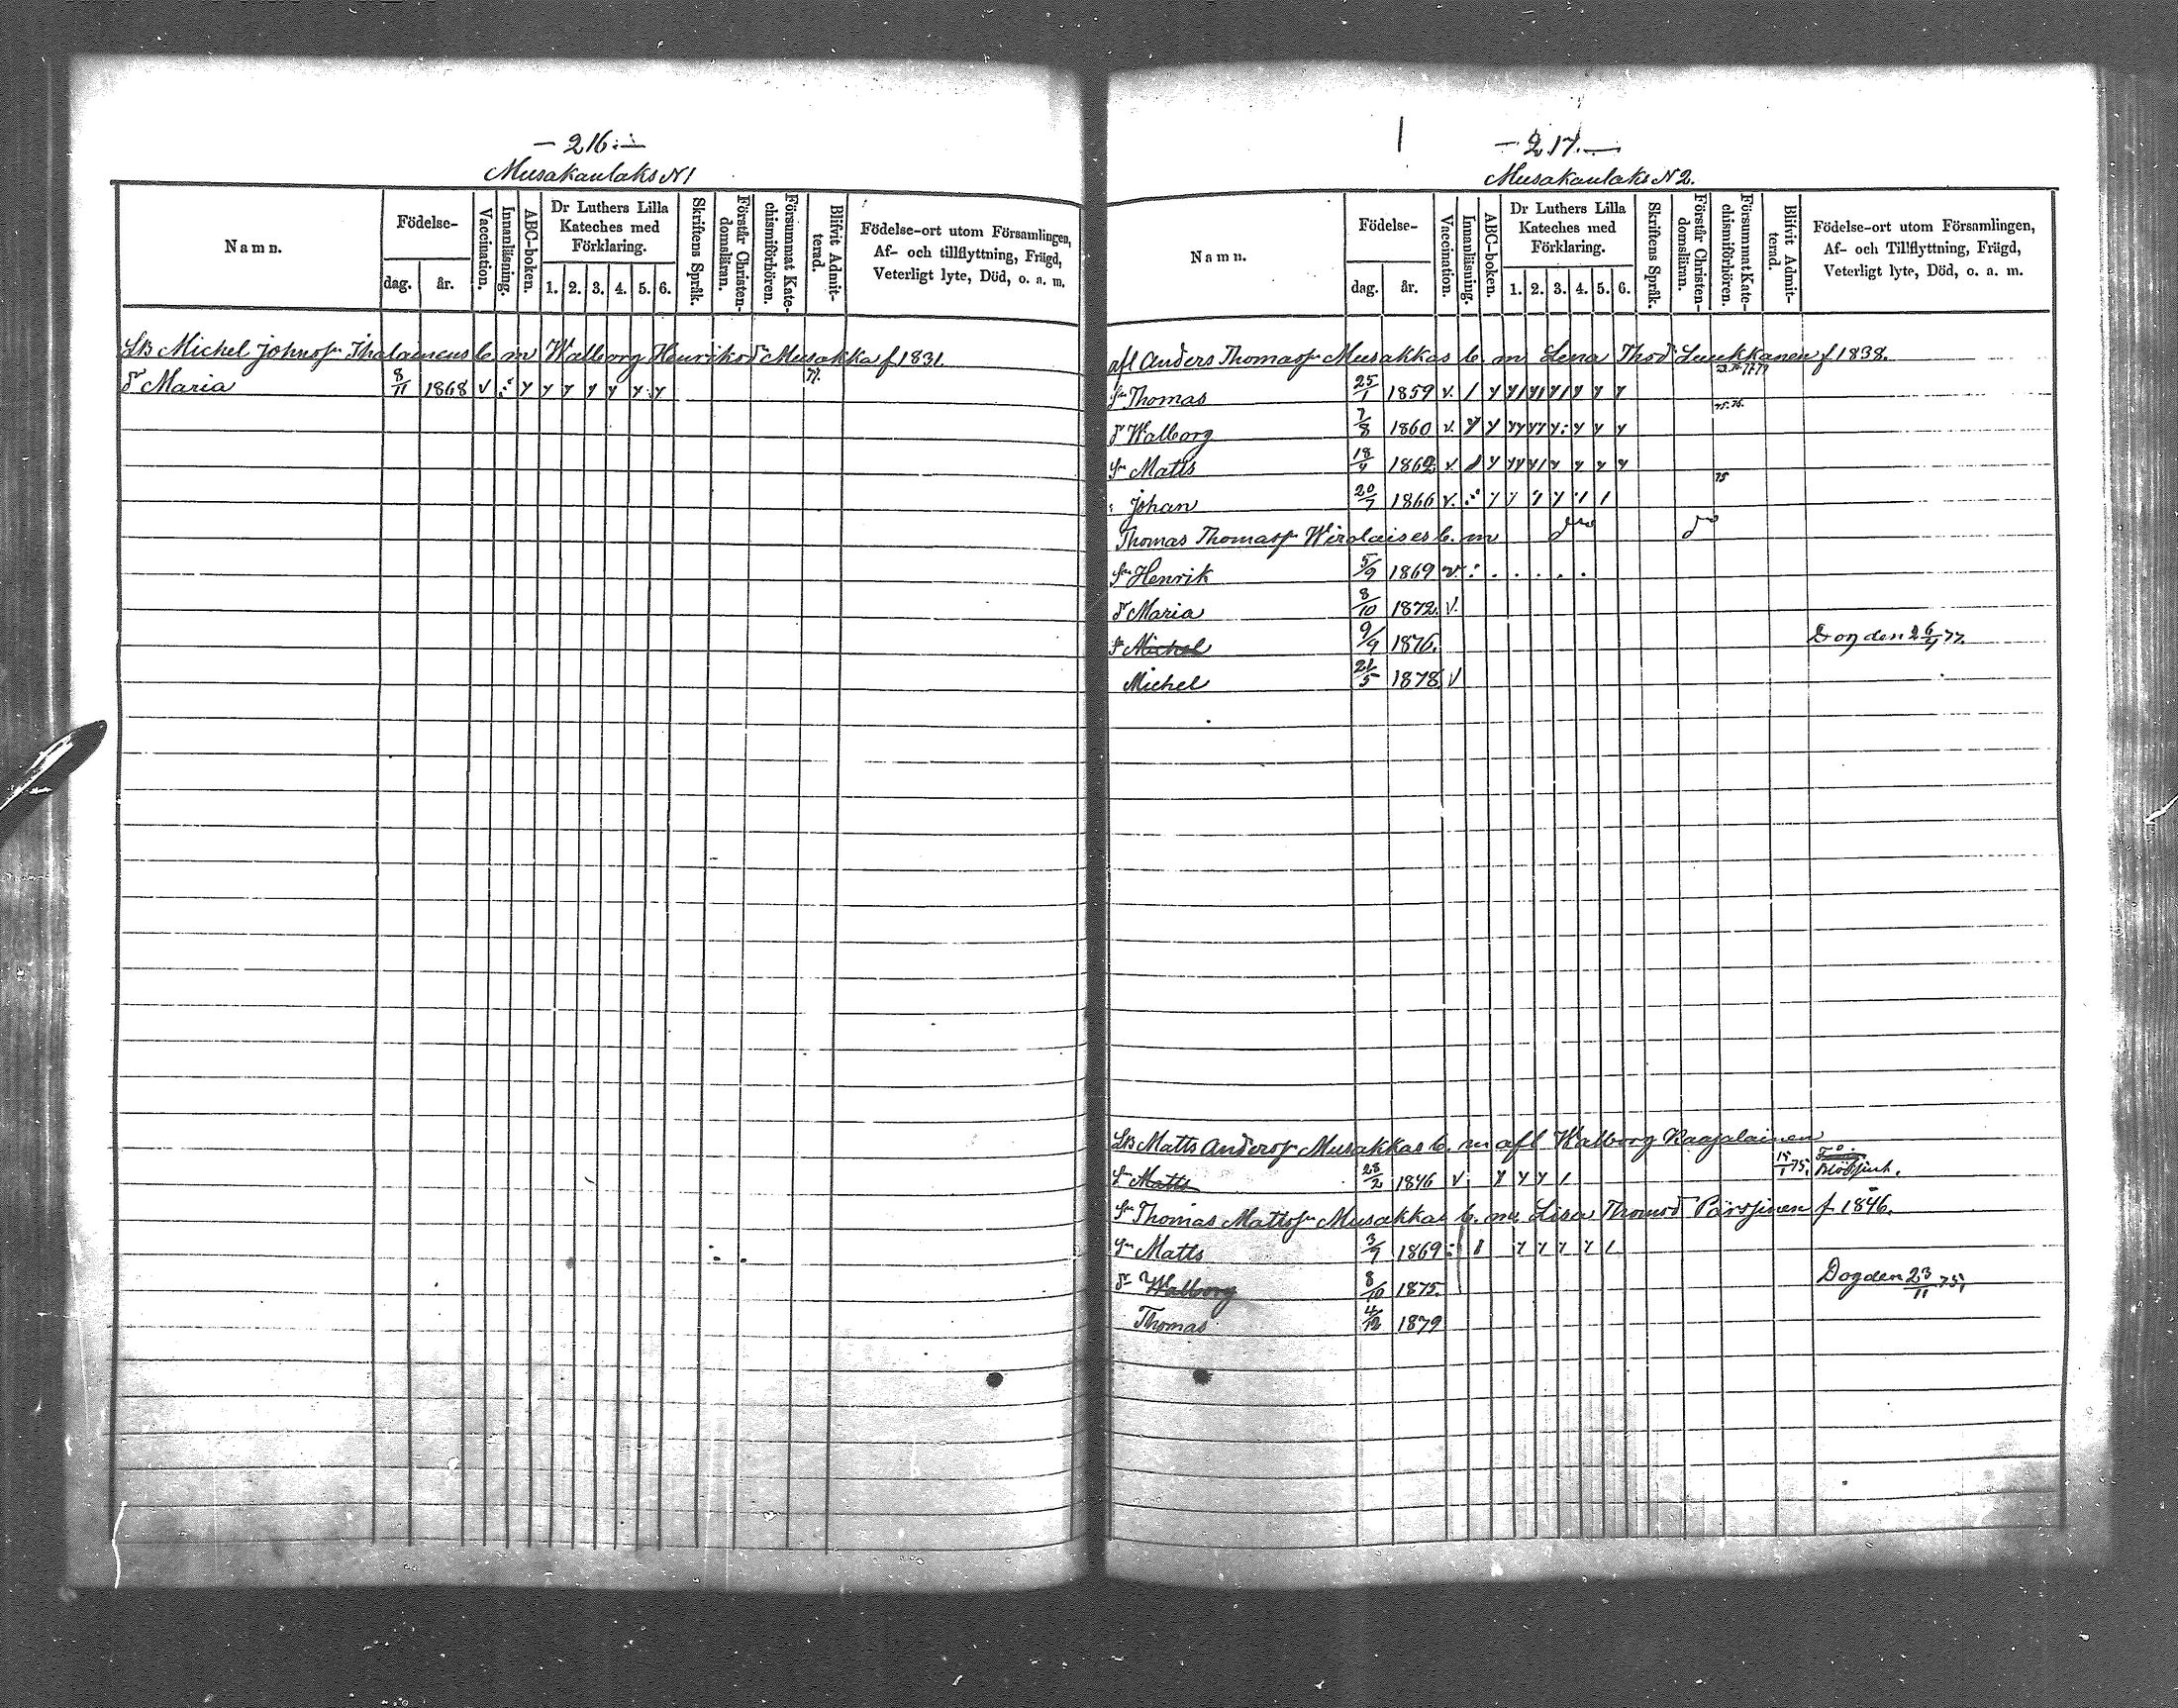 — 216 —
Musakanlaks N1
Namn.
Födelse-
dag.
år.
Vaccination.
Innanläsning.
ABC-boken.
Dr Luthers Lilla Kateches med Förklaring.
1. 2. 3. 4. 5. 6.
Skriftens Språk.
Förstår Christendomsläran.
Försummat Katechismiförhören.
Blifvit Admitterad.
Födelse-ort utom Församlingen, Af- och tillflyttning, Frägd, Veterligt lyte, Död, o. a. m.
LB Michel Johnssn Thalainens b. m Walborg Henriksdr Musakka f 1831.
dr Maria 8/11 1868 v
— 217. —
Musakanlaks N2.
Namn.
Födelse-
dag.
år.
Vaccination.
Innanläsning.
ABC-boken.
Dr Luthers Lilla Kateches med Förklaring.
1. 2. 3. 4. 5. 6.
Skriftens Språk.
Förstår Christendomsläran.
Försummat Katechismiförhören.
Blifvit Admitterad.
Födelse-ort utom Församlingen, Af- och Tillflyttning, Frägd, Veterligt lyte, Död, o. a. m.
afl Anders Thomassn Musakkas b. m Lena Thod Luukkanen f 1838.
Sn Thomas 25/1 1859 v.
dr Walborg 7/8 1860 v. 75.76.
Sn Matts 18/4 1862 v
" Johan 20/7 1866 v. 75
Thomas Thomassn Wirolaises b. m do do
Sn Henrik 5/9 1869 v.
dr Maria 8/10 1872. v.
Sn Michel 9/9 1876. Dog den 26/4 77.
Michel 21/5 1878 v
LB Matts Anderssn Musakkas b. m afl Walborg Naajalainen
Sn Matts 28/2 1846 v. 15/1 75.
Sn Thomas Mattssn Musakkas b. m Lisa Thomsd Pärssinen f. 1846.
Sn Matts 3/7 1869
dr Walborg 8/10 1875. Dog den 23/11 75,
Thomas 4/12 1879